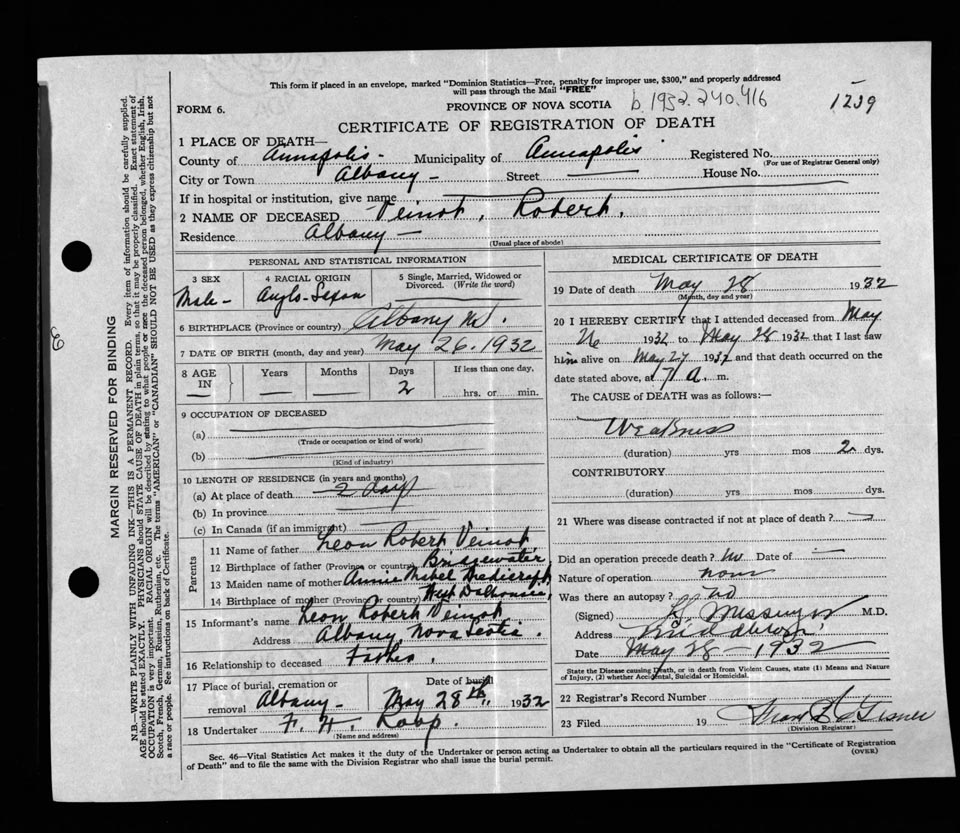 This form if placed in an envelope, marked "Dominion Statistics—Free, penalty for improper use, $300," and properly addressed
will pass through the Mail "FREE"
FORM 6.
PROVINCE OF NOVA SCOTIA b. 1932. 240.416 1239
CERTIFICATE OF REGISTRATION OF DEATH
1 PLACE OF DEATH—
County of Annapolis - Municipality of Annapolis Registered No.
(For use of Registrar General only)
City or Town Albany - Street House No.
If in hospital or institution, give name
2 NAME OF DECEASED Veinot, Robert.
Residence Albany —
(Usual place of abode)
PERSONAL AND STATISTICAL INFORMATION
3 SEX
Male -
4 RACIAL ORIGIN
Anglo-Sexon
5 Single, Married, Widowed or
Divorced. (Write the word)
6 BIRTHPLACE (Province or country) Albany NS.
7 DATE OF BIRTH (month, day and year) May 26. 1932
8 AGE
IN
Years
—
Months
—
Days
2
If less than one day,
hrs. or min.
9 OCCUPATION OF DECEASED
(a)
(Trade or occupation or kind of work)
(b)
(Kind of industry)
10 LENGTH OF RESIDENCE (in years and months)
(a) At place of death 2 days
(b) In province
(c) In Canada (if an immigrant)
Parents
11 Name of father Leon Robert Veinot
12 Birthplace of father (Province or country) Bridgewater
13 Maiden name of mother Annie Mabel
14 Birthplace of mother (Province or country) West Dalhousie
15 Informant's name Leon Robert Veinot
Address Albany, Nova Scotia.
16 Relationship to deceased Father.
17 Place of burial, cremation or
removal Albany -
Date of burial
May 28th, 1932
18 Undertaker F. H. Roop.
(Name and address)
MEDICAL CERTIFICATE OF DEATH
19 Date of death May 28 1932
(Month, day and year)
20 I HEREBY CERTIFY that I attended deceased from May
26 1932 to May 28 1932 that I last saw
him alive on May 27 1932 and that death occurred on the
date stated above, at 7 a. m.
The CAUSE of DEATH was as follows:—
Weakness
(duration) yrs mos 2 dys.
CONTRIBUTORY
(duration) yrs mos dys.
21 Where was disease contracted if not at place of death?
Did an operation precede death? no Date of —
Nature of operation none
Was there an autopsy? no
(Signed) Messenger M.D.
Address Middleton
Date May 28 - 1932
State the Disease causing Death, or in death from Violent Causes, state (1) Means and Nature
of Injury, (2) whether Accidental, Suicidal or Homicidal.
22 Registrar's Record Number
23 Filed 19
(Division Registrar)
Sec. 46—Vital Statistics Act makes it the duty of the Undertaker or person acting as Undertaker to obtain all the particulars required in the "Certificate of Registration
of Death" and to file the same with the Division Registrar who shall issue the burial permit.
(OVER)
MARGIN RESERVED FOR BINDING
N.B.—WRITE PLAINLY WITH UNFADING INK—THIS IS A PERMANENT RECORD. Every item of information should be carefully supplied.
AGE should be stated EXACTLY. PHYSICIANS should STATE CAUSE OF DEATH in plain terms, so that it may be properly classified. Exact statement of
OCCUPATION is very important. RACIAL ORIGIN will be described by stating to what people or race the deceased person belonged, whether English, Irish,
Scotch, French, German, Russian, Ruthenian, etc. The terms "AMERICAN" or "CANADIAN" SHOULD NOT BE USED as they express citizenship but not
a race or people. See instructions on back of Certificate.